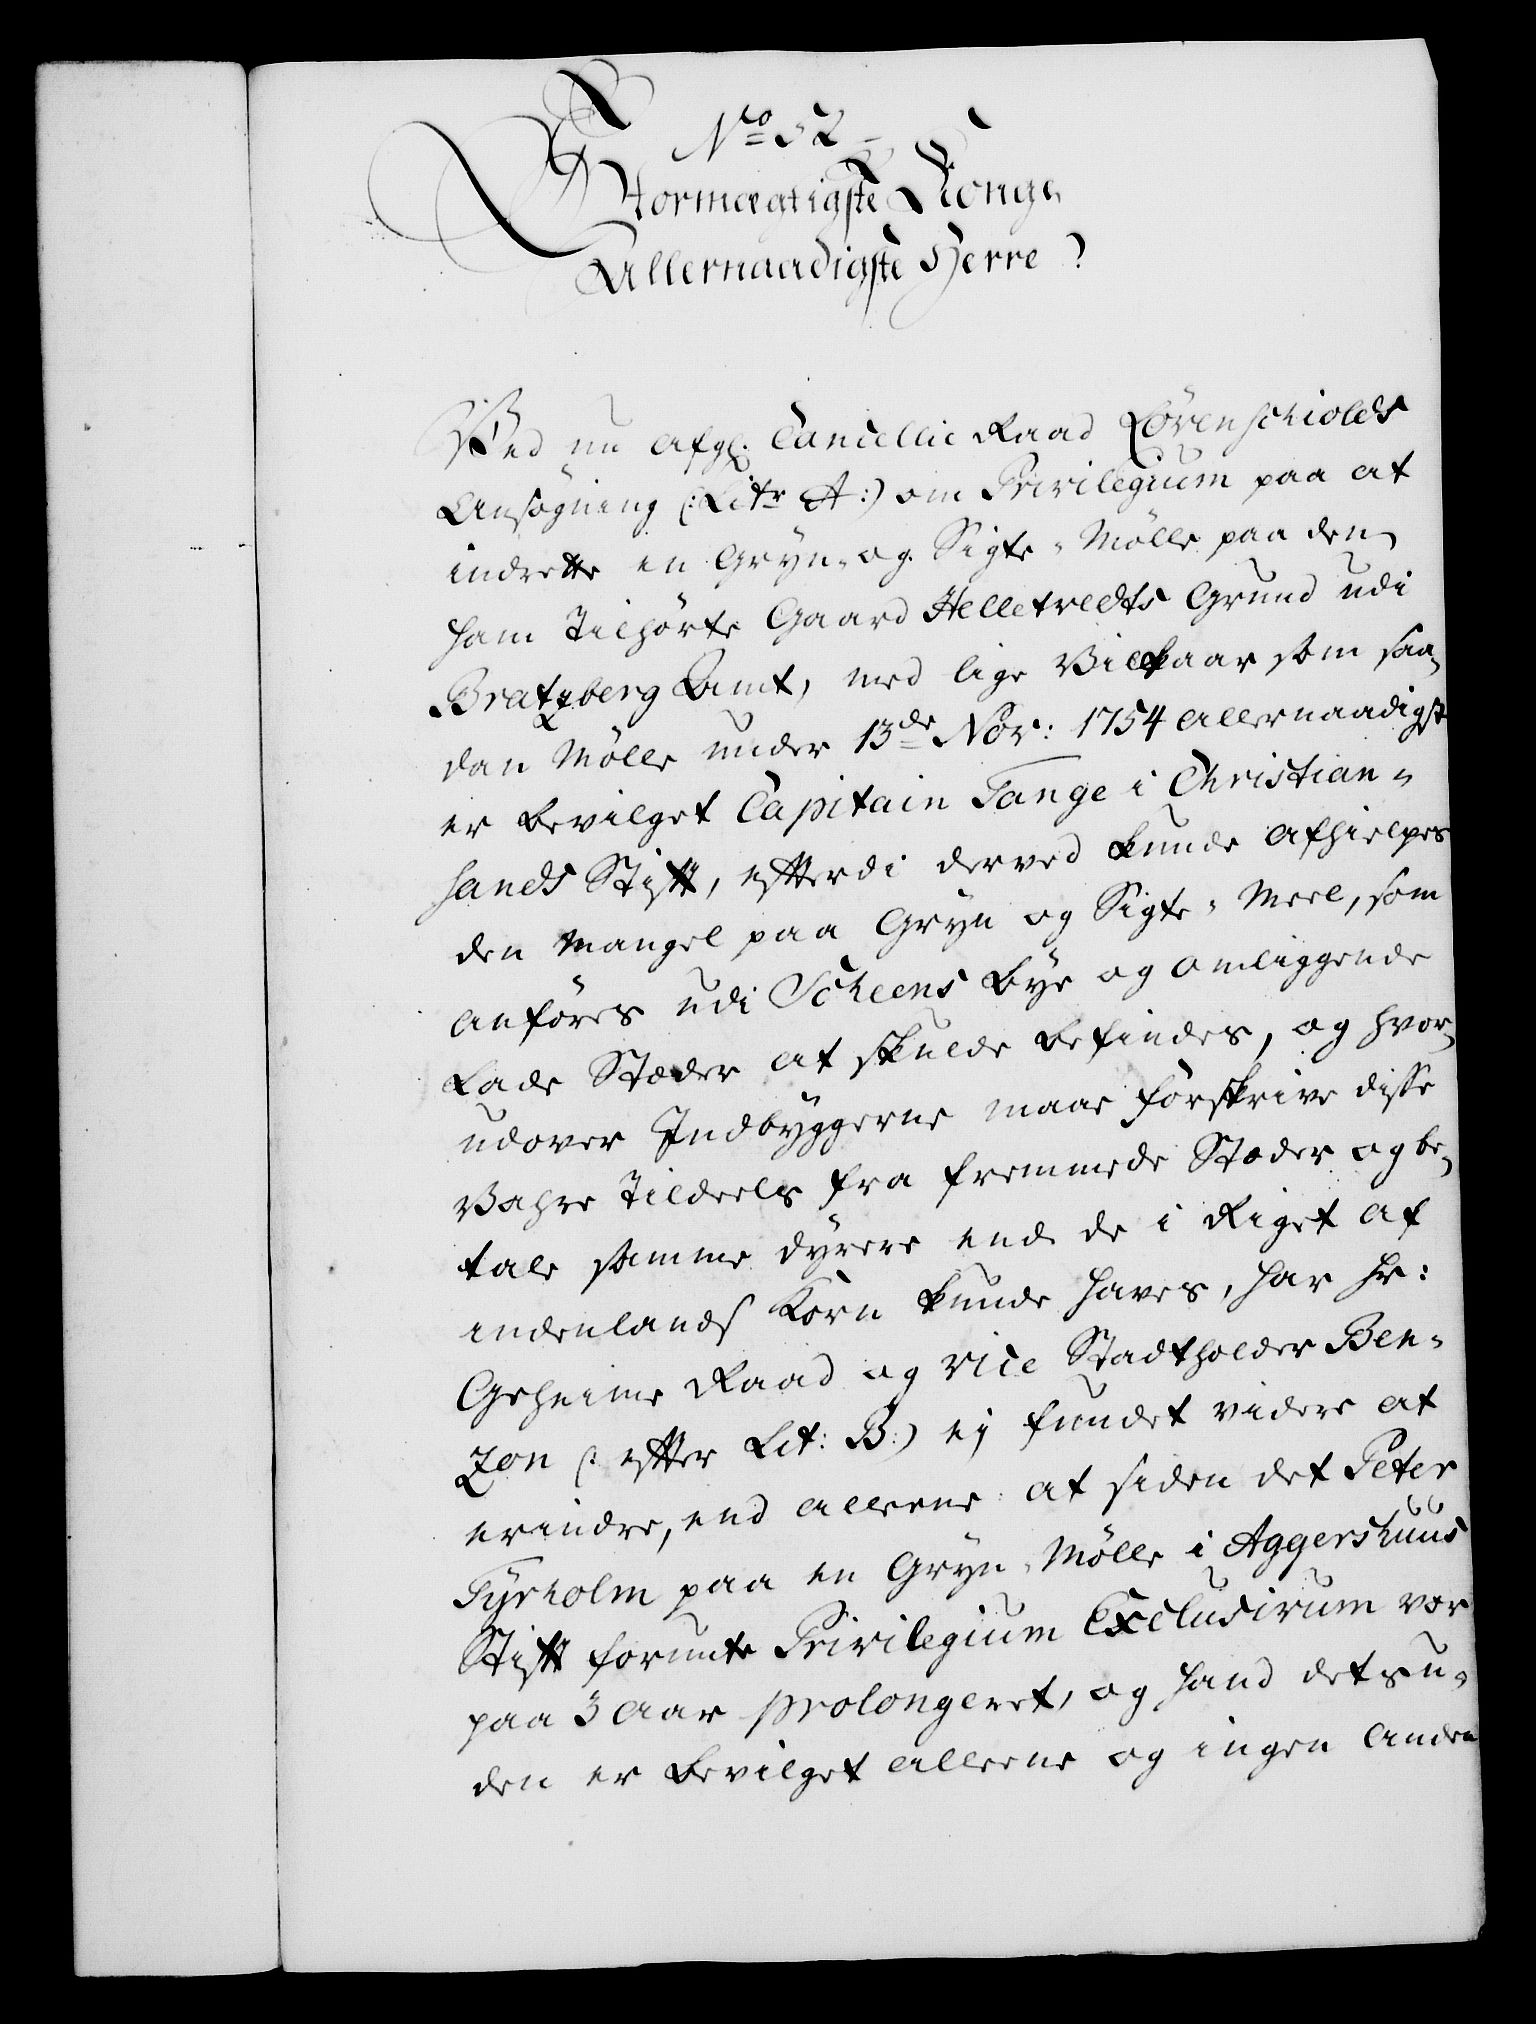 No 52
Stormægtigste Konge
Allernaadigste Herre!
Ved nu afgl. Cancellie Raad Løvenschiolds
Ansøgning (: Litr A :) om Privilegium paa at
indrette en Gryn- og Sigte-Mølle paa den
ham Tilhørte Gaard Helletvedts Grund udi
Bratzberg Amt, med lige Vilkaar som saa-
dan Mølle under 13de Nov: 1754 allernaadigst
er bevilget Capitain Tange i Christian-
sands Stift, efterdi derved kunde afhielpes
den Mangel paa Gryn og Sigte-Meel, som
anføres udi Scheens Bye og omliggende
Lade Stæder at skulde befindes, og hvor-
udover Indbyggerne maae forskrive disse
Vahre Tildeels fra fremmede Stæder og be-
tale samme dyrere end de i Riget af
indenlands Korn kunde haves, har Hr:
Geheime Raad og Vice Stadtholder Ben-
zon (: efter Lit: B :) ej fundet videre at
erindre, end alleene at siden det Peter
Tyrholm paa en Gryn-Mølle i Aggershuus
Stift forunte Privilegium Exclusivum var
paa 3 Aar prolongeret, og hand det su-
den er bevilget alleene og ingen anden